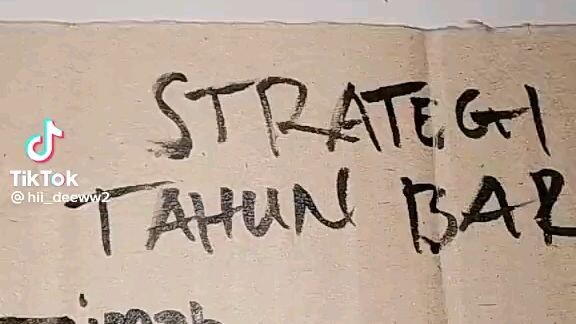 STRATEGI
TAHUN BAR
TikTok
@hii_deeww2